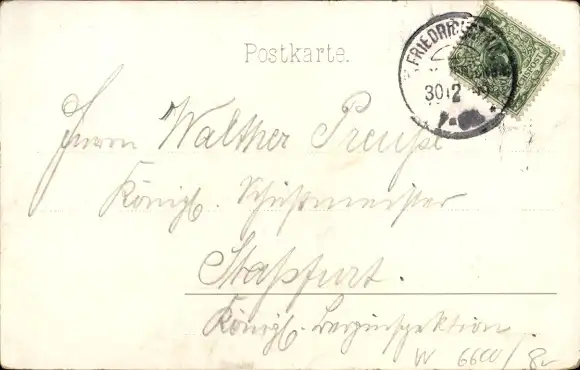 Postkarte.
FRIEDRICH
30 12
Herrn Walther Preuße
Königl. Schießmeister
Staßfurt.
Königl. Berginspektion
W 6600/8